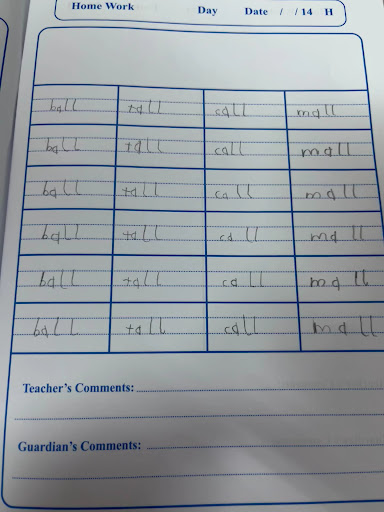 Home Work Day Date / / 14 H
ball tall call mall
ball tall call mall
ball tall call mall
ball tall call mall
ball tall call mall
ball tall call mall
Teacher's Comments:
Guardian's Comments: